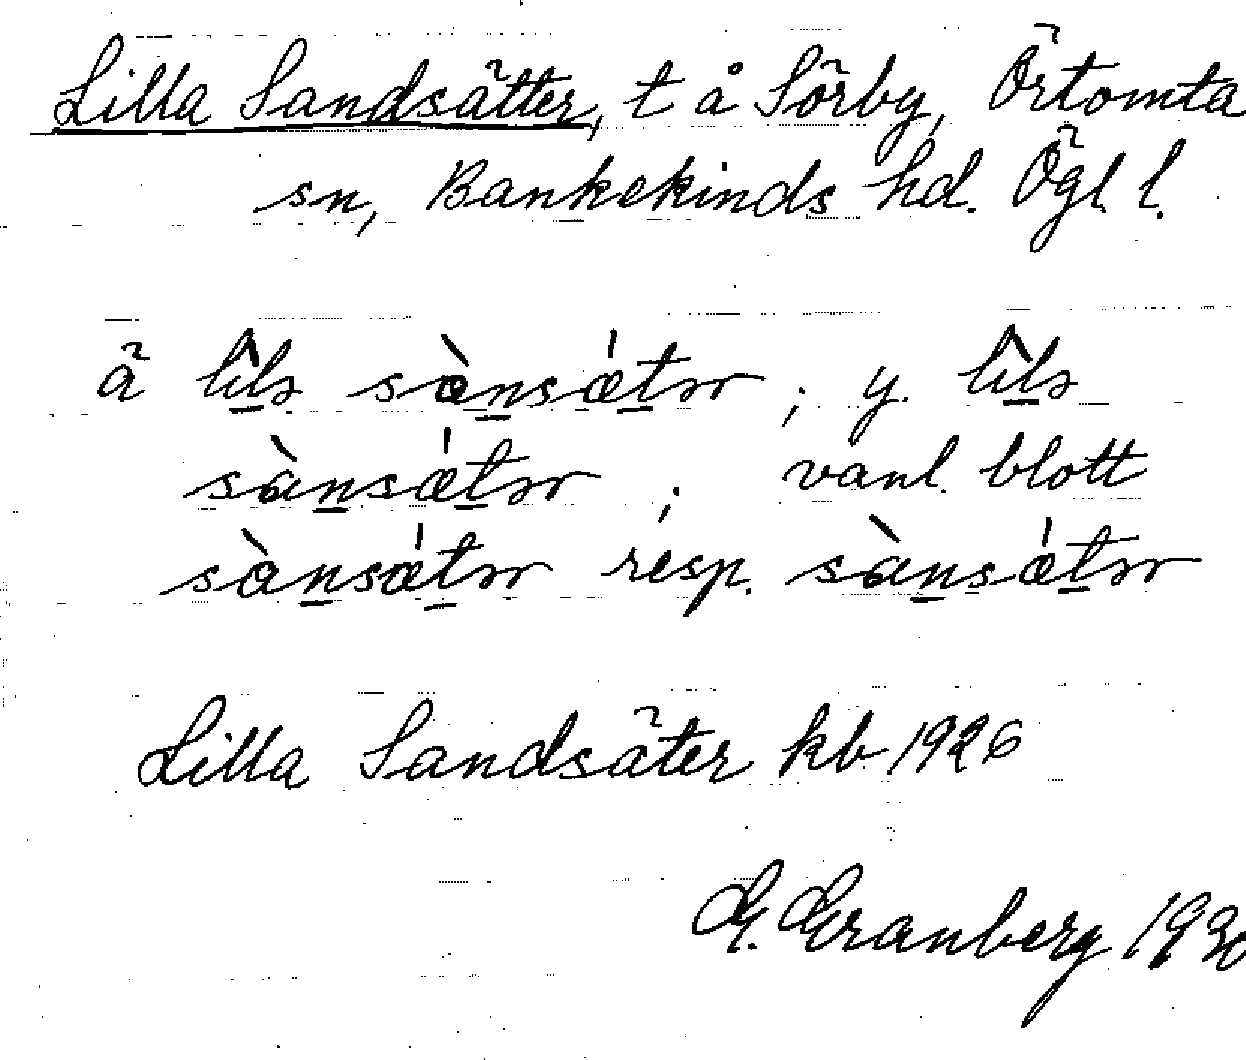 Lilla Sandsätter, t å Sörby, Örtomta
sn, Bankekinds hd. Ögl l.
ä lìlə sànsǽtər ; y. lìlə
sànsǽtər ; vanl. blott
sànsǽtər resp. sànsǽtər
Lilla Sandsäter kb 1926
G. Granberg 1930